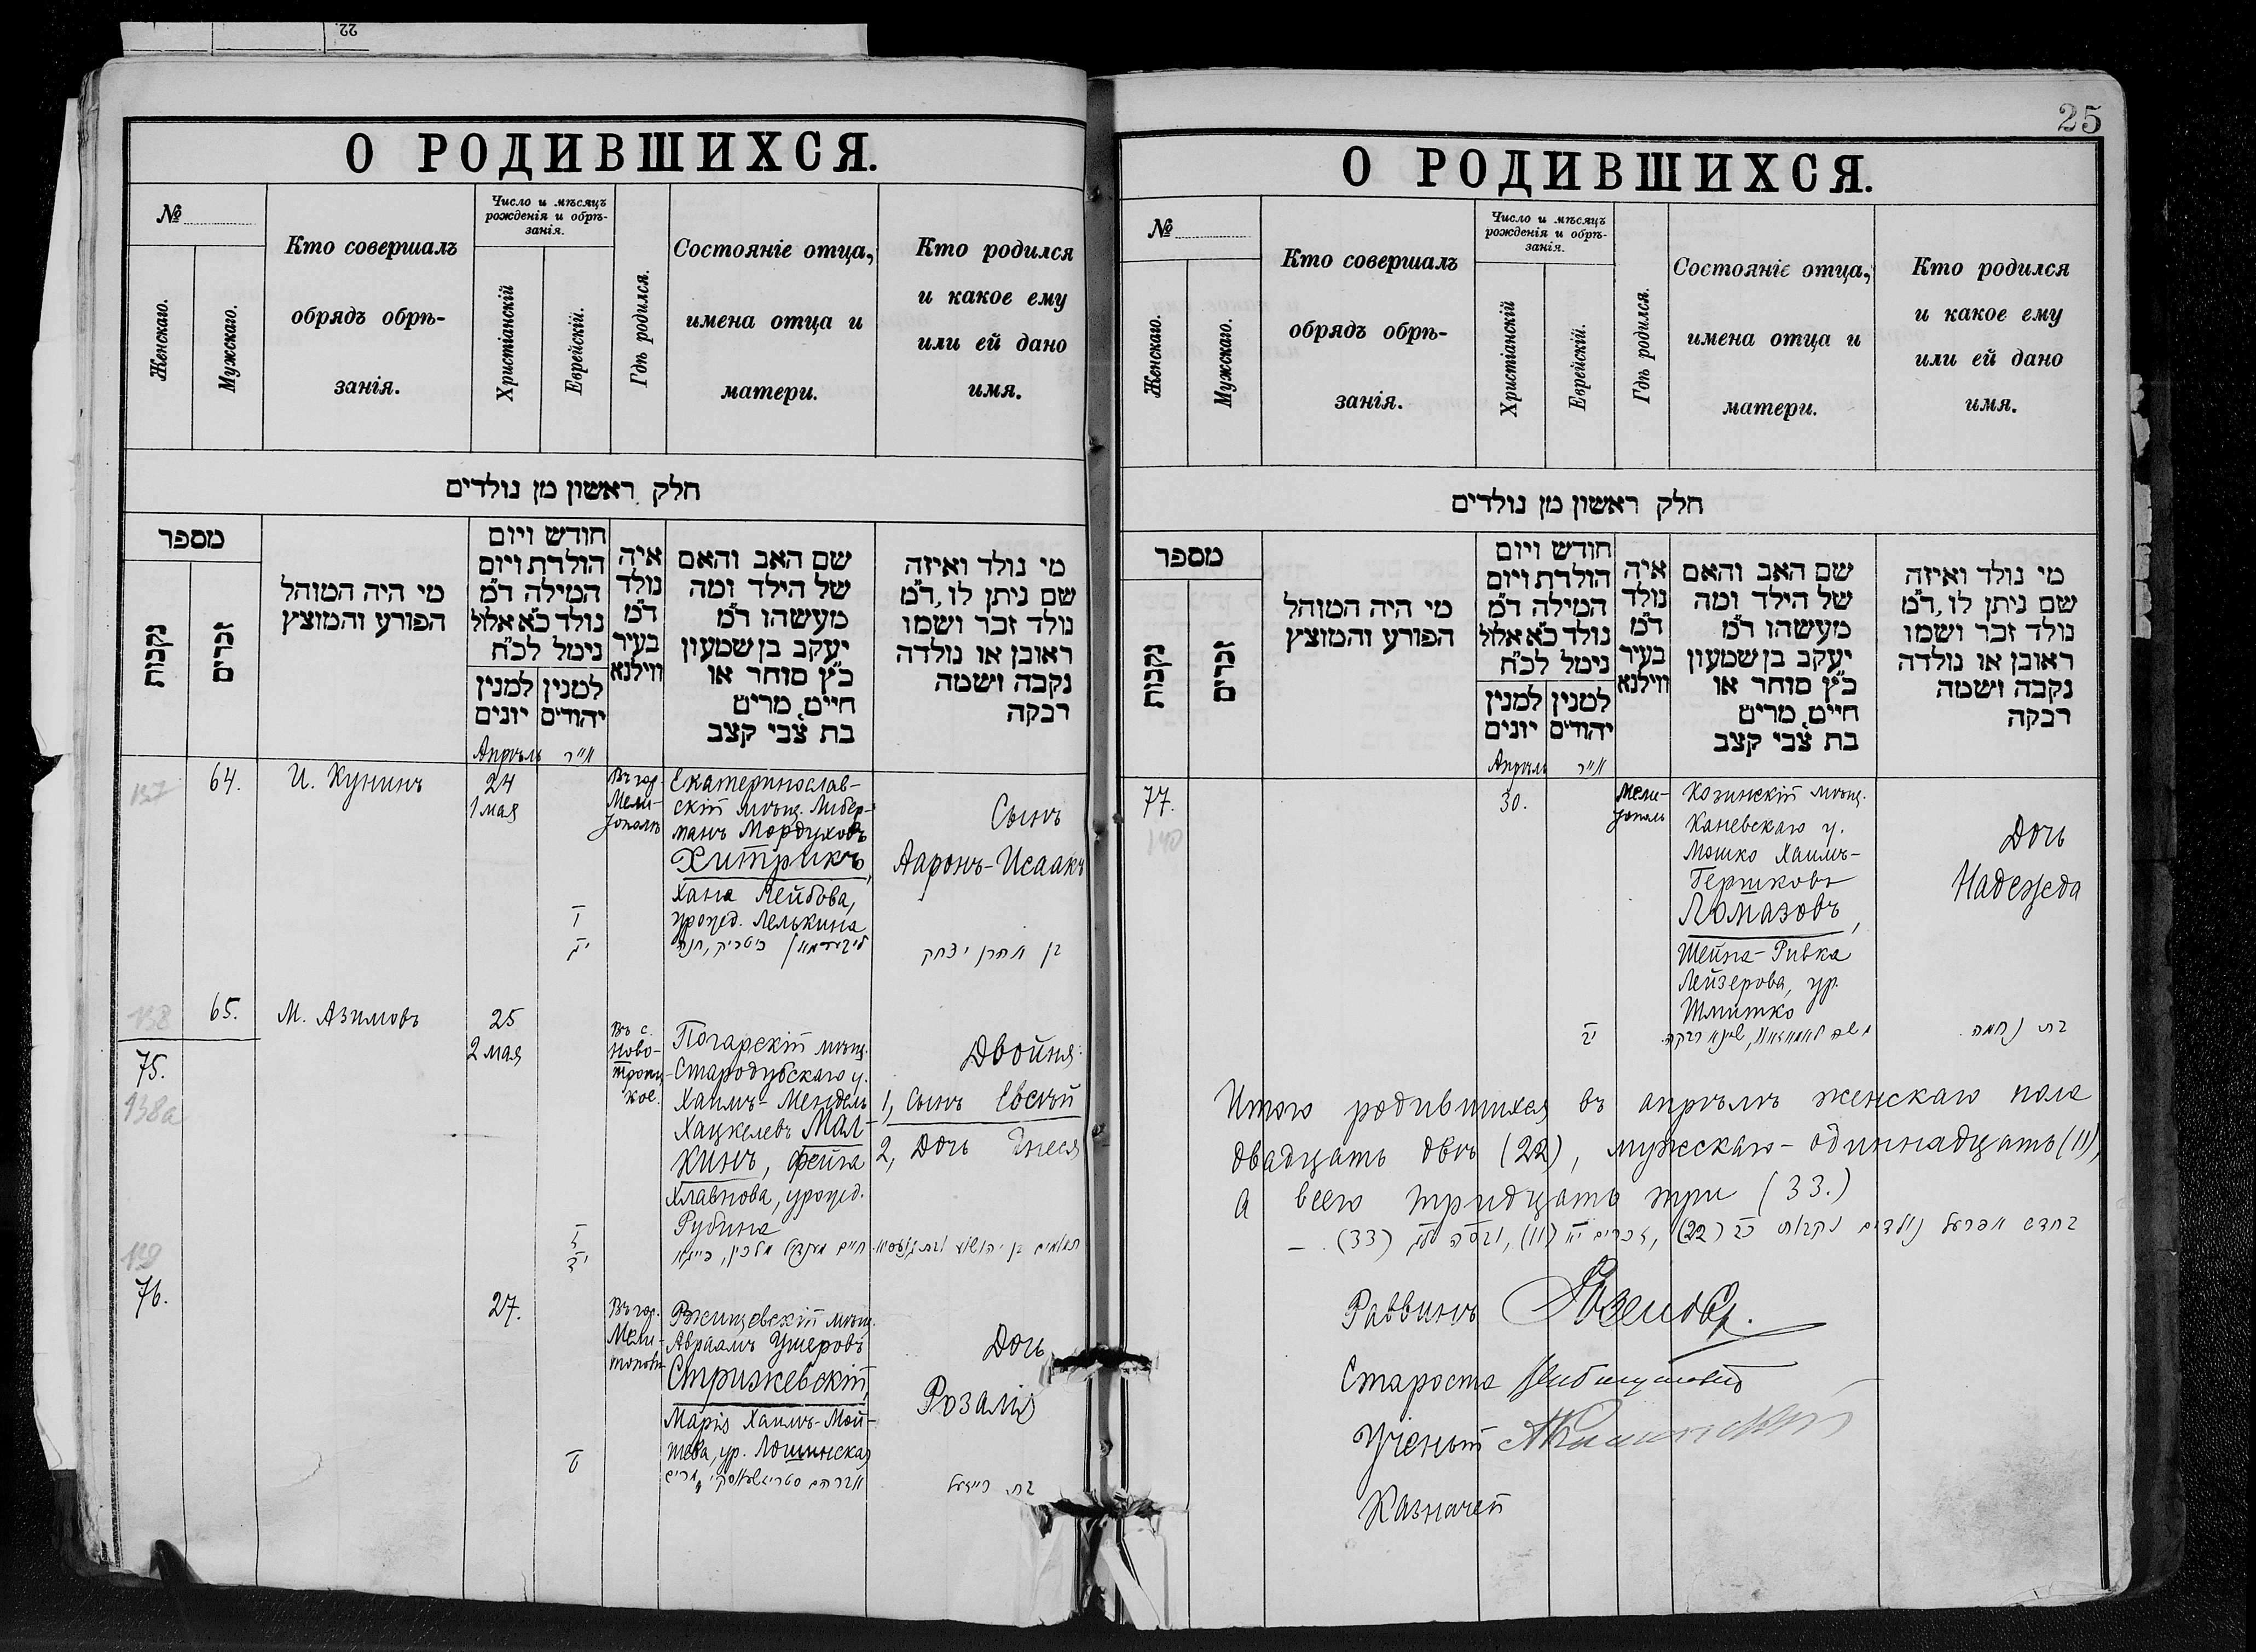 22
О РОДИВШИХСЯ.
№
Женскаго.
Мужскаго.
Кто совершалъ
обрядъ обрѣ-
занія.
Число и мѣсяцъ
рожденія и обрѣ-
занія.
Христіанскій
Еврейскій.
Гдѣ родился.
Состояніе отца,
имена отца и
матери.
Кто родился
и какое ему
или ей дано
имя.
חלק ראשון מן נולדים
מספר
נקבות
זכרים
מי היה המוהל
הפורע והמוצץ
חודש ויום
הולדת ויום
המילה ד״מ
נולד כ״א אלול
נימל לכ״ח
למנין יונים
למנין יהודים
איה
נולד
ד״מ
בעיר
ווילנא
שם האב והאם
של הילד ומה
מעשהו ד״מ
יעקב בן שמעון
כ״ץ סוחר או
חייט, מרים
בת צבי קצב
מי נולד ואיזה
שם ניתן לו, ד״מ
נולד זכר ושמו
ראובן או נולדה
נקבה ושמה
רבקה
Апрѣль אייר
137
64.
И. Кунинъ
24
1 мая
Въ гор.
Мели-
тополѣ
Екатеринослав-
скій мѣщ. Либер-
манъ Мордуховъ
Хитрикъ,
Хана Лейбова,
урожд. Лелькина
Сынъ
Ааронъ-Исаакъ
בן אהרן יצחק
138
65.
М. Азимовъ
25
2 мая
75.
138а
Въ с.
Ново-
троиц-
кое.
Погарскій мѣщ.
Стародубскаго у.
Хаимъ-Мендель
Хацкелевъ Мал-
кинъ, Фейга
Хлавнова, урожд.
Рубина
Двойня:
1, Сынъ Евсѣй
2, Дочь
139
76.
27.
Въ гор.
Мели-
тополѣ
Ржищевскій мѣщ.
Авраамъ Ушеровъ
Стрижевскій,
Марія Хаимъ-Мой-
шева, ур. Лошинская
Дочь
Розалія
25
О РОДИВШИХСЯ.
№
Женскаго.
Мужскаго.
Кто совершалъ
обрядъ обрѣ-
занія.
Число и мѣсяцъ
рожденія и обрѣ-
занія.
Христіанскій
Еврейскій.
Гдѣ родился.
Состояніе отца,
имена отца и
матери.
Кто родился
и какое ему
или ей дано
имя.
חלק ראשון מן נולדים
מספר
נקבות
זכרים
מי היה המוהל
הפורע והמוצץ
חודש ויום
הולדת ויום
המילה ד״מ
נולד כ״א אלול
נימל לכ״ח
למנין יונים
למנין יהודים
איה
נולד
ד״מ
בעיר
ווילנא
שם האב והאם
של הילד ומה
מעשהו ד״מ
יעקב בן שמעון
כ״ץ סוחר או
חייט, מרים
בת צבי קצב
מי נולד ואיזה
שם ניתן לו, ד״מ
נולד זכר ושמו
ראובן או נולדה
נקבה ושמה
רבקה
Апрѣль אייר
77.
140
30.
Мели-
тополь
Козинскій мѣщ.
Каневскаго у.
Мошко Хаимъ-
Гершковъ
Ломазовъ,
Шейна-Ривка
Лейзерова, ур.
Шмитко
Дочь
Надежда
בת נחמה
Итого родившихся въ апрѣлѣ женскаго пола
двадцать двѣ (22), мужскаго - одиннадцать (11),
а всего тридцать три (33.)
Раввинъ
Староста
Ученый
Казначей